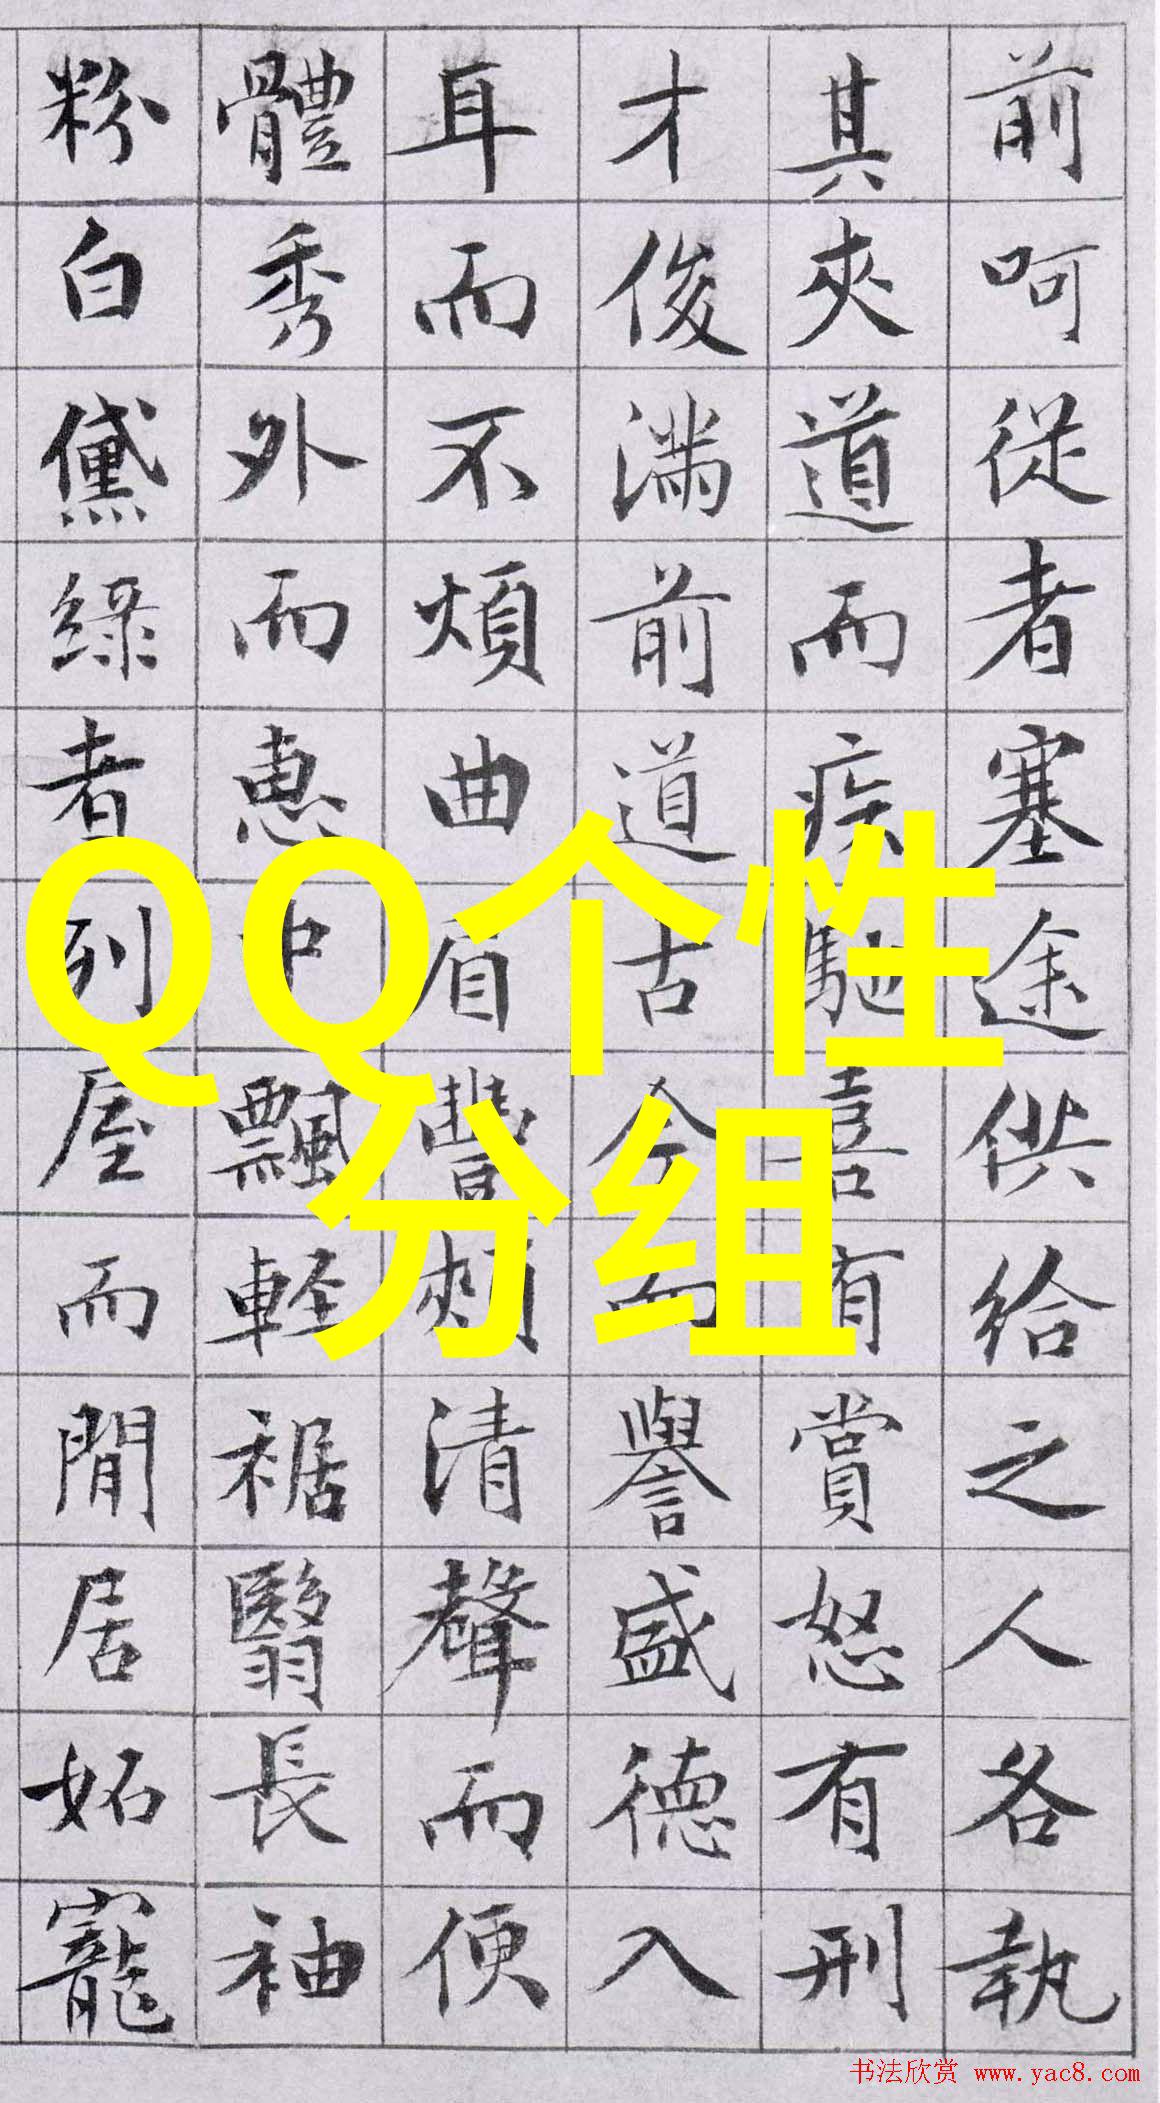 前呵從者塞途供給之人各執
其夾道而疾馳喜有賞怒有刑
才俊滿前道古今而譽盛德入
耳而不煩曲眉豐頰清聲而便
體秀外而惠中飄輕裾翳長袖
粉白黛綠者列屋而閒居妬寵
QQ个性
分组
书法欣赏 www.yac8.com